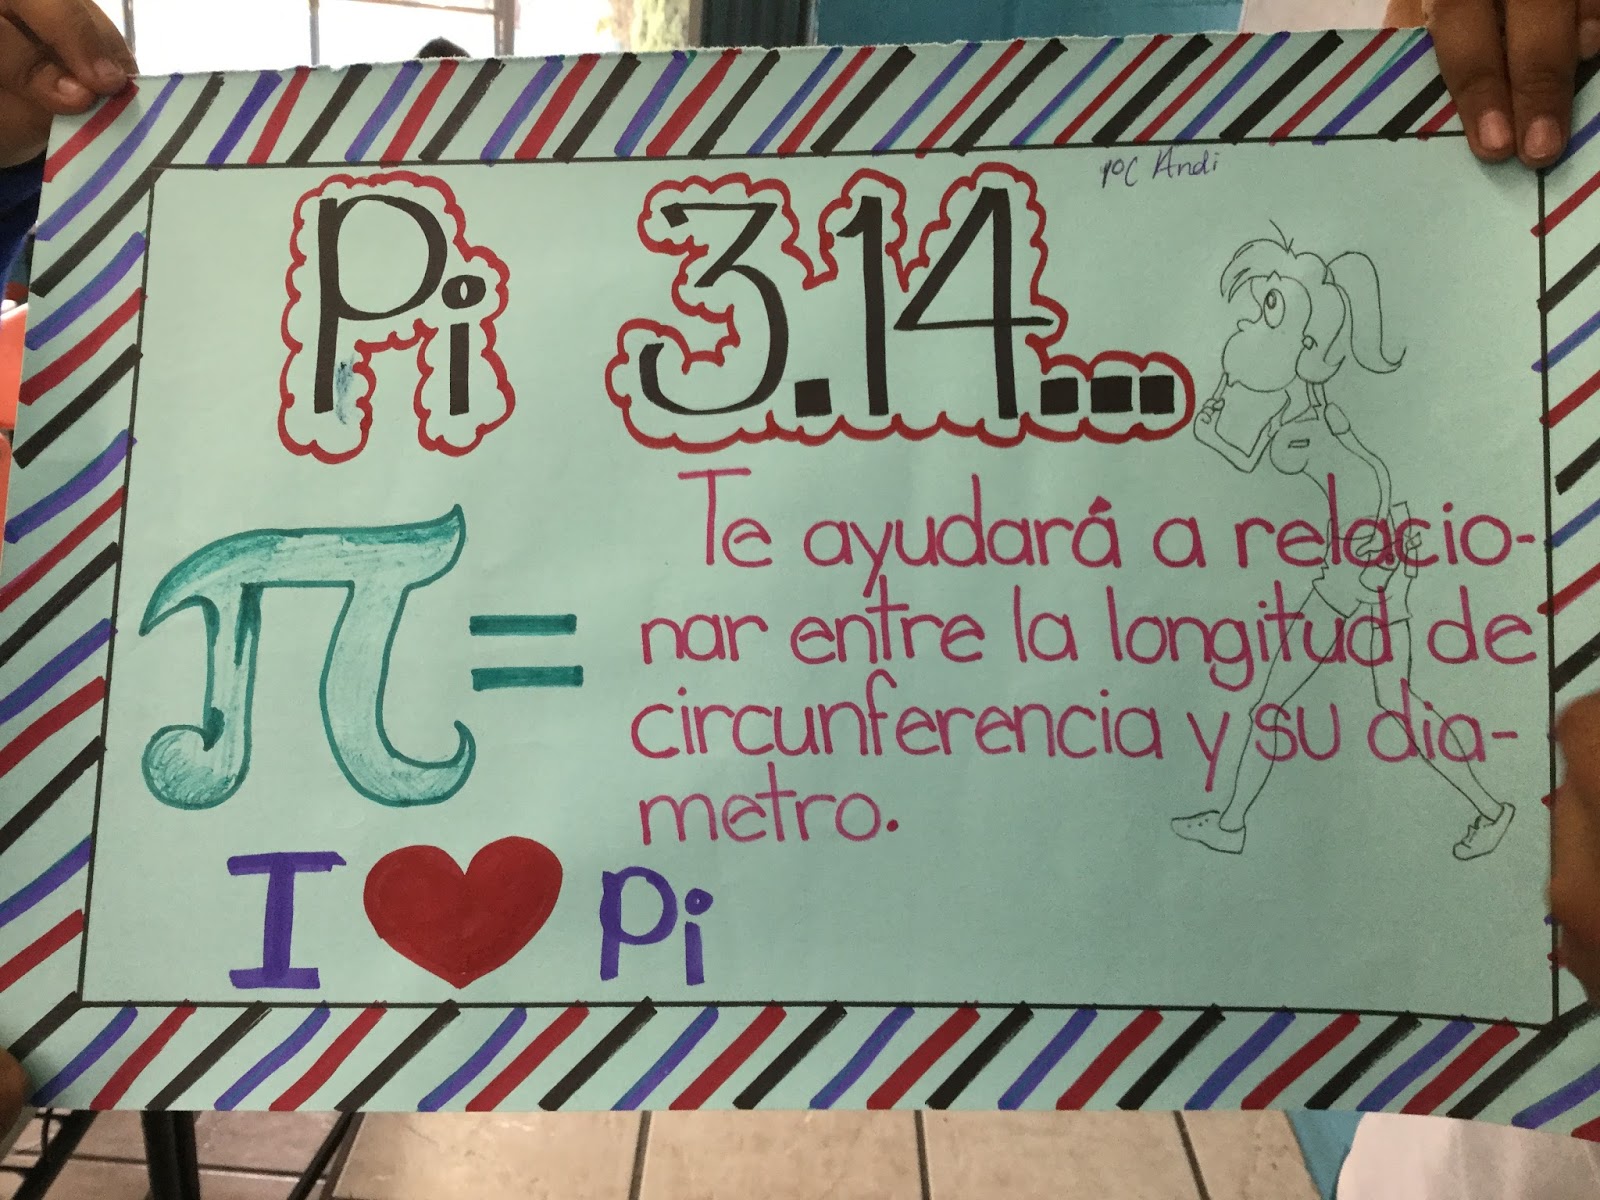 1°C Andi
Pi 3.14...
π =
Te ayudará a relacio-
nar entre la longitud de
circunferencia y su diá-
metro.
I ❤ Pi